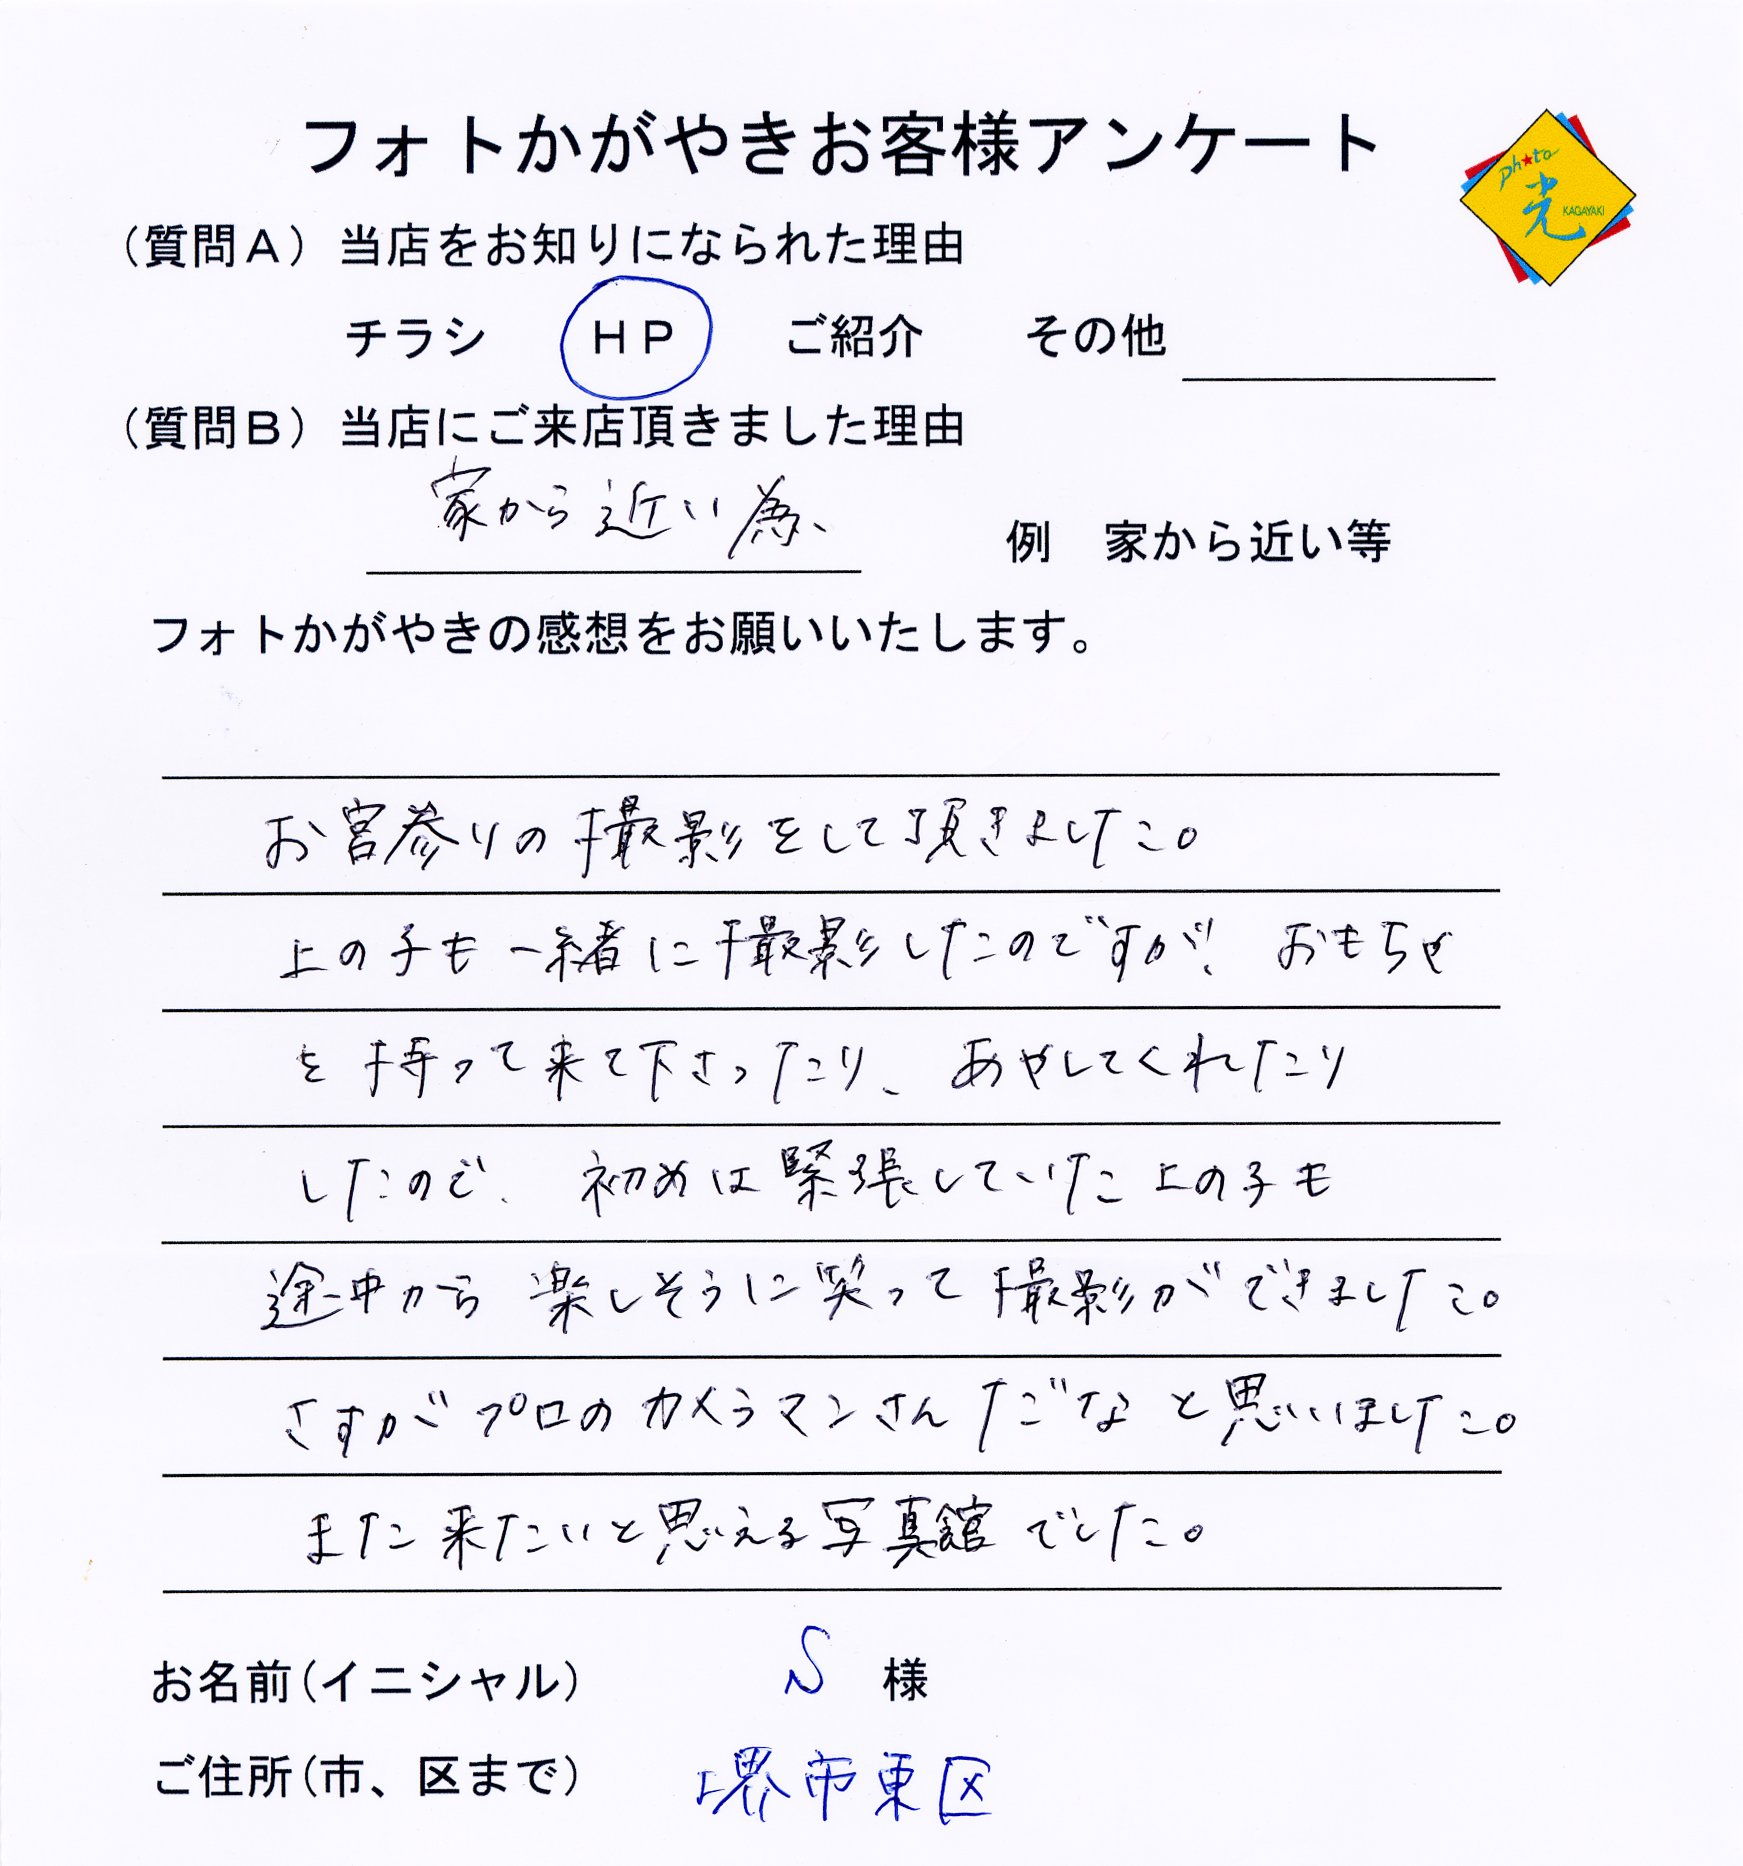 フォトかがやきお客様アンケート
photo
光
KAGAYAKI
(質問A)当店をお知りになられた理由
チラシ HP ご紹介 その他
(質問B)当店にご来店頂きました理由
家から近い為、
例 家から近い等
フォトかがやきの感想をお願いいたします。
お宮参りの撮影をして頂きました。
上の子も一緒に撮影したのですが、おもちゃ
を持って来て下さったり、あやしてくれたり
したので、初めは緊張していた上の子も
途中から楽しそうに笑って撮影ができました。
さすがプロのカメラマンさんだなと思いました。
また来たいと思える写真館でした。
お名前(イニシャル) S 様
ご住所(市、区まで) 堺市東区